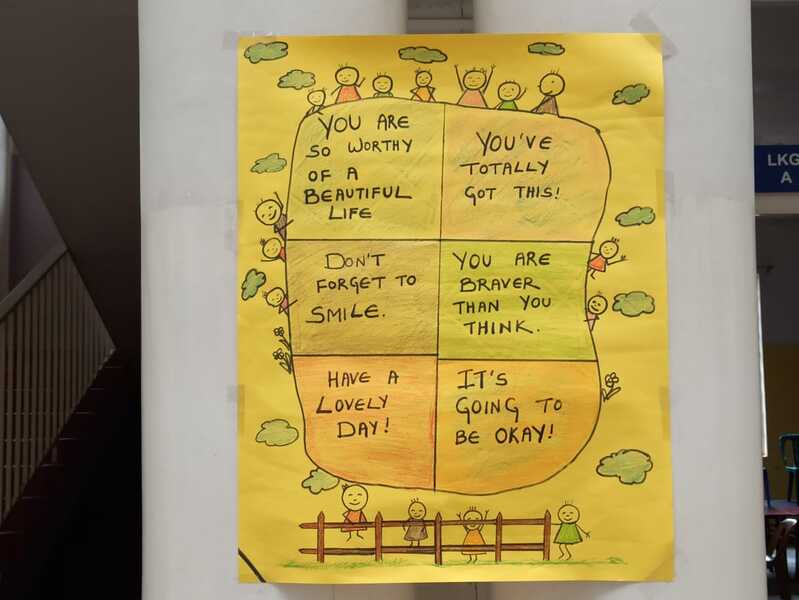 YOU ARE
SO WORTHY
OF A
BEAUTIFUL
LIFE
YOU'VE
TOTALLY
GOT THIS!
DON'T
FORGET TO
SMILE.
YOU ARE
BRAVER
THAN YOU
THINK.
HAVE A
LOVELY
DAY!
IT'S
GOING TO
BE OKAY!
LKG
A